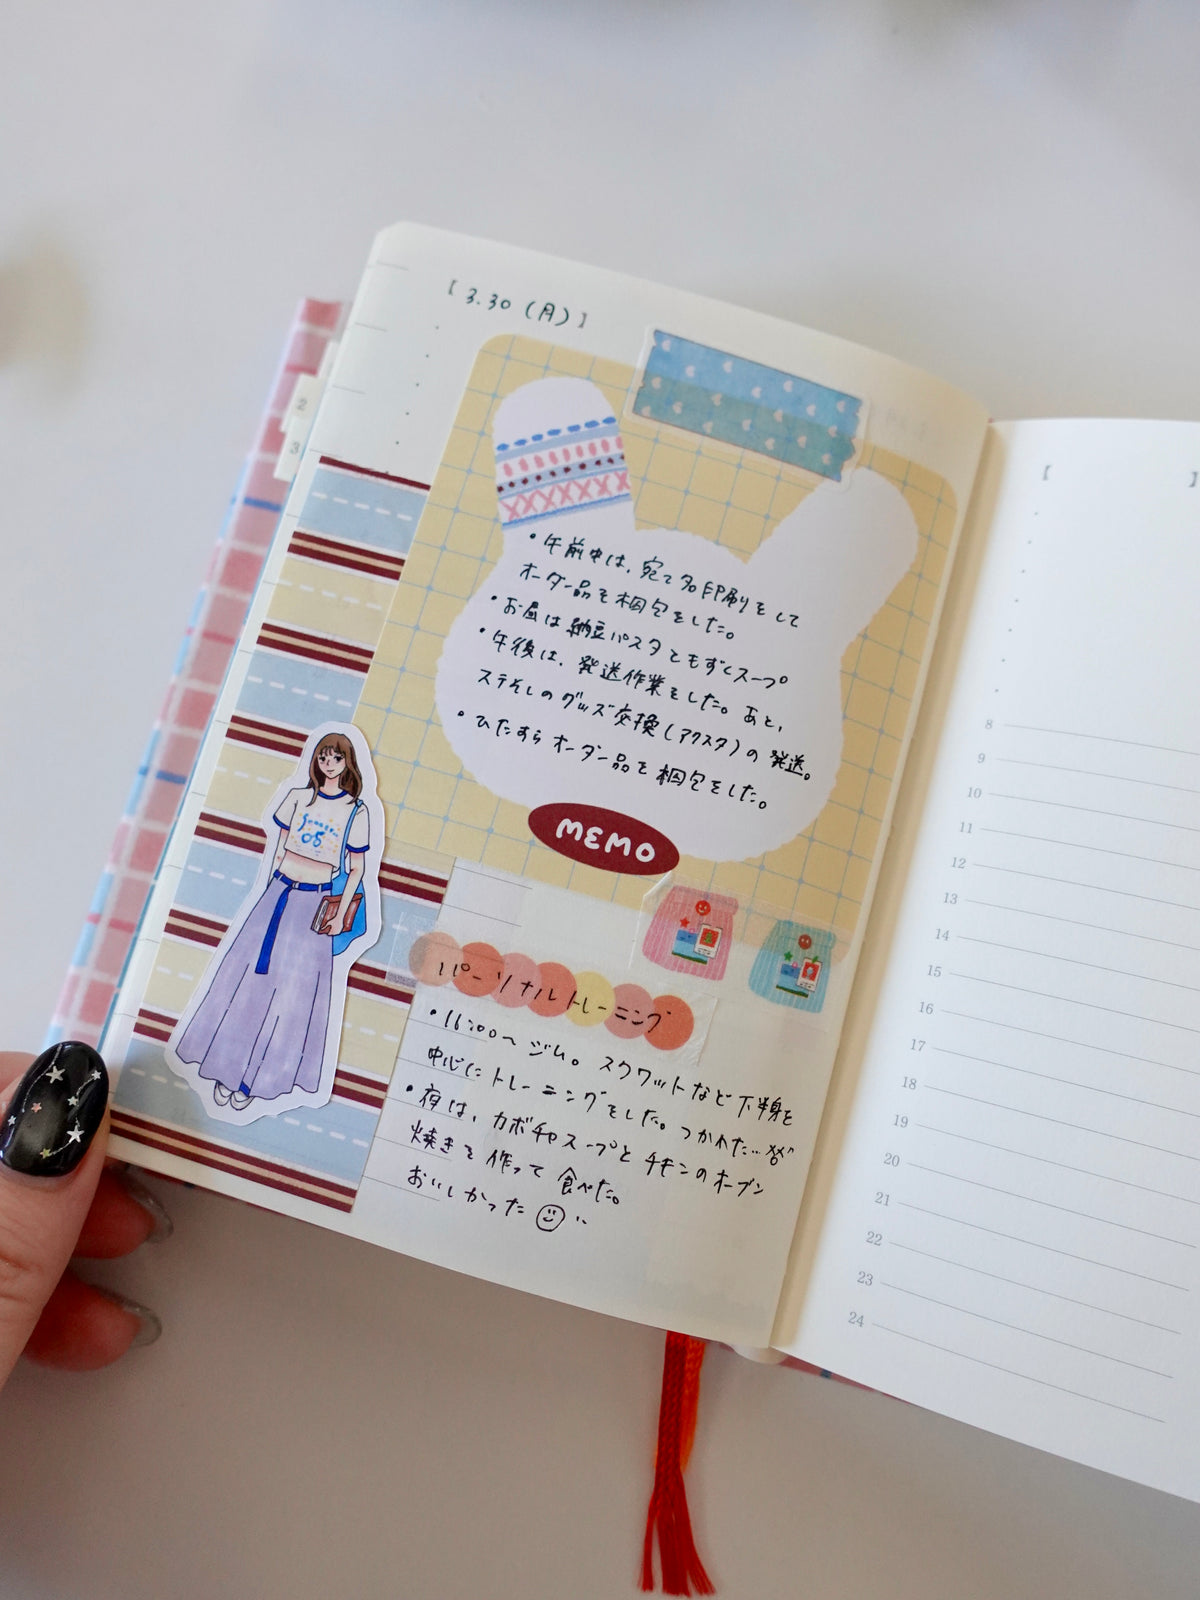 【3.30(月)】
・午前中は、宛て名印刷をして
オーダー品を梱包をした。
・お昼は納豆パスタともずくスープ
・午後は、発送作業をした。あと、
ステそしのグッズ交換(アクスタ)の発送。
・ひたすらオーダー品を梱包をした。
MEMO
05
パーソナルトレーニング
・16:00〜ジム。スクワットなど下半身を
中心にトレーニングをした。つかれた…
・夜は、カボチャスープとチキンのオーブン
焼きを作って食べた。
おいしかった
2
3
【 】
8
9
10
11
12
13
14
15
16
17
18
19
20
21
22
23
24